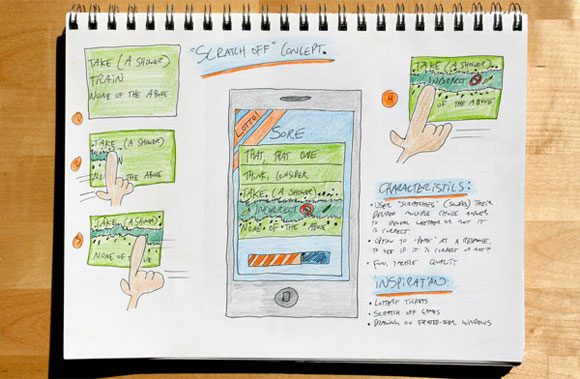 "SCRATCH OFF" CONCEPT.
1
TAKE (A SHOWER)
TRAIN
NONE OF THE ABOVE
2
TAKE (A SHOWER)
IN
NO OF THE ABOVE
3
TAKE (A SHOWER)
NONE OF VE
LOTTO!
SORE
THAT, THAT ONE
THINK, CONSIDER
TAKE (A SHOWER)
INCORRECT
NONE OF THE ABOVE
4
TAKE (A SHOWER)
INCORRECT
OF THE ABOVE
CHARACTERISTICS:
• USER "SCRATCHES" THEIR
DESIRED MULTIPLE CHOICE ANSWER
TO REVEAL WHETHER OR NOT IT
IS CORRECT.
• OPTION TO "PEEK" AT A RESPONSE,
TO SEE IF IT IS CORRECT OR NOT
• FUN, TACTILE QUALITY
INSPIRATION:
• LOTTERY TICKETS
• SCRATCH OFF GAMES
• DRAWING ON FROSTED-OVER WINDOWS.